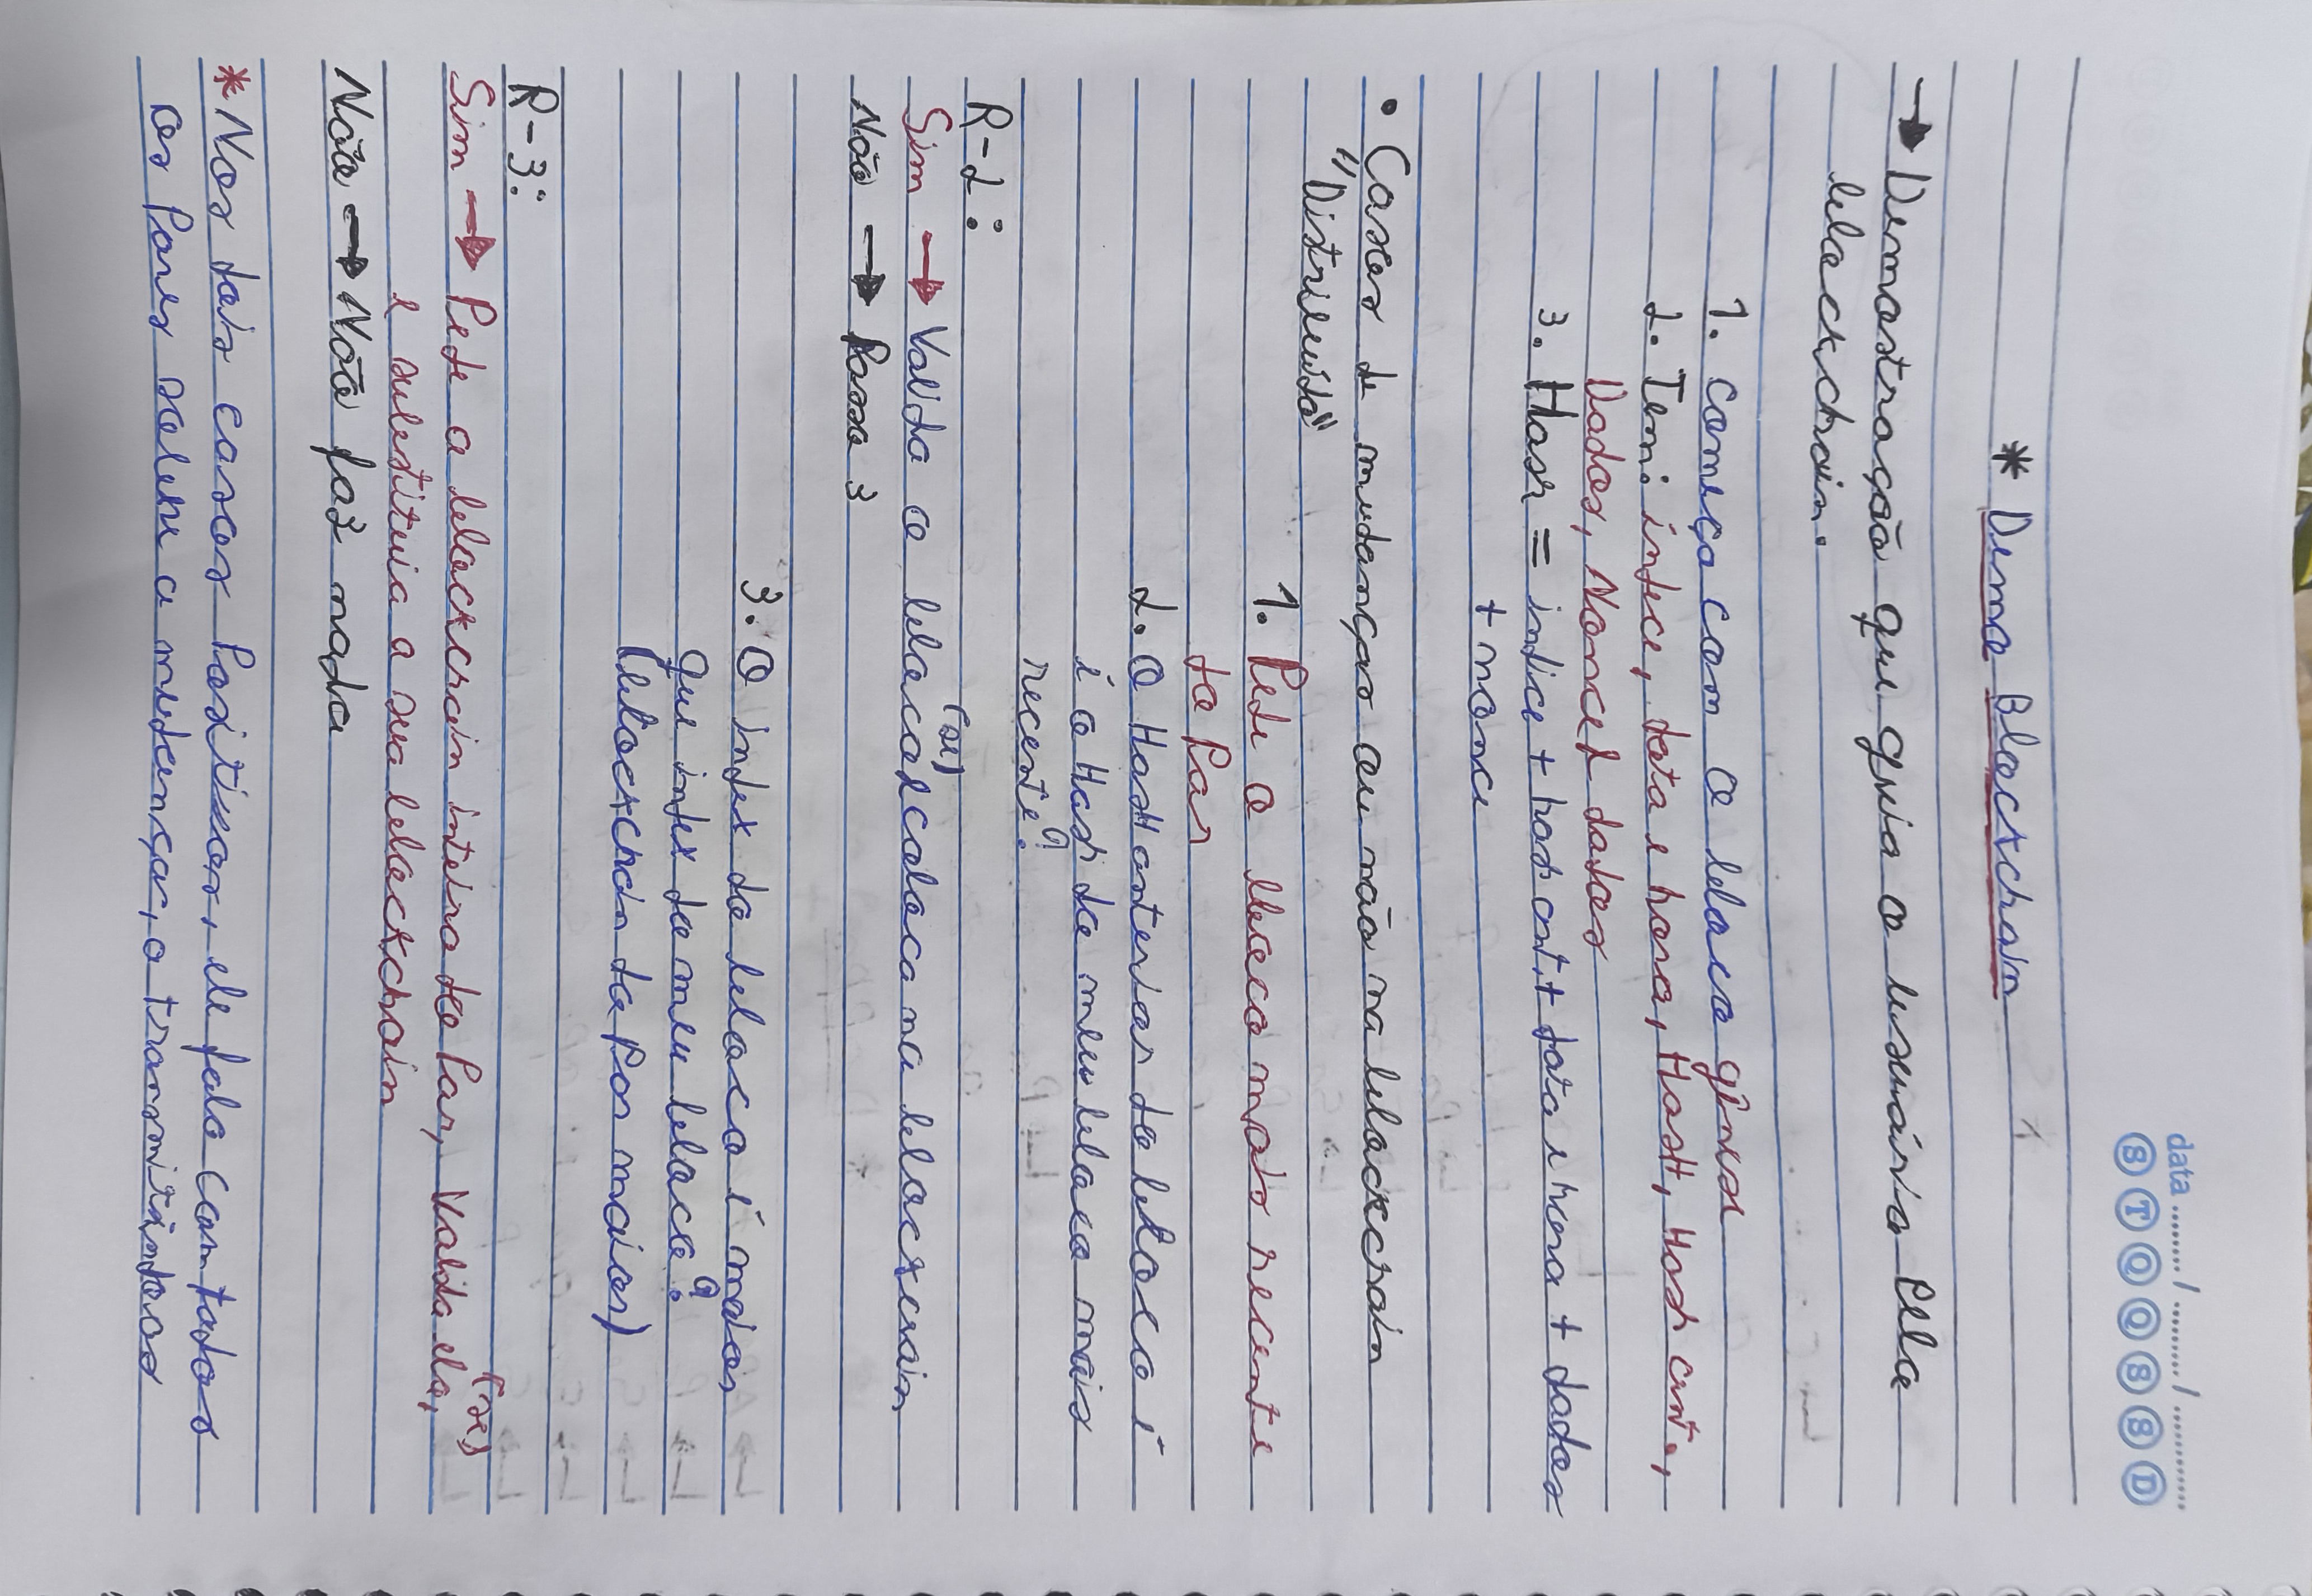 data ......../ ........./ ............
S T Q Q S S D
* Demo Blockchain
→ Demostração que guia o usuário Pela
blockchain.
1. começa com o bloco gênese
2. Tem: índece, data e hora, Hash, Hash ant.,
Dados, Nonce & dados
3. Hash = indice + hash ant. + data e hora + dados
+ nonce
• Casos de mudanças ou não na blockchain
"Distribuída"
1. Pede o bloco mais recente
do Par
2. O Hash anterior do bloco é
é o Hash do meu bloco mais
recente?
R-2:
(se)
Sim → Valida o bloco e coloca na blockchain
Não → Passo 3
3. O index do bloco é maior
que index do meu bloco?
(blockchain do Par maior)
R-3:
(se)
Sim → Pede a blockchain inteira do Par, Valida ela,
e substituia a sua blockchain
Não → Não faz nada
* Nos dois casos Positivos, ele fala com todos
os Pares sobre a mudança, o transmitindo-os